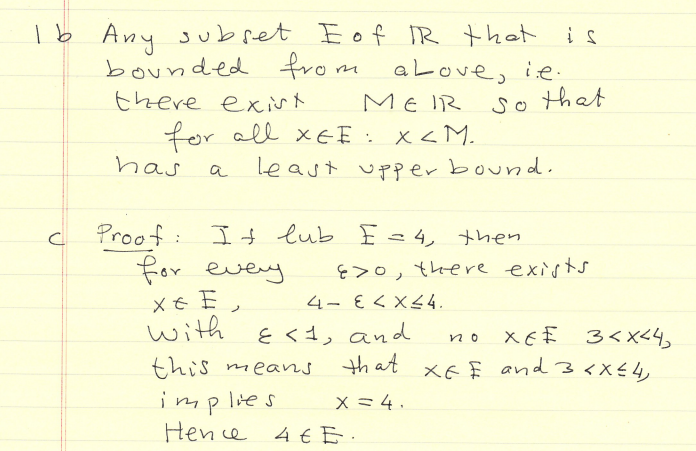 1b Any subset E of ℝ that is
bounded from above, i.e.
there exist M ∈ ℝ so that
for all x∈E : x < M.
has a least upper bound.
c Proof : If lub E = 4, then
for every ε>0, there exists
x ∈ E , 4 - ε < x ≤ 4.
With ε < 1, and no x∈E 3<x<4,
this means that x∈E and 3<x≤4,
implies x = 4.
Hence 4 ∈ E.